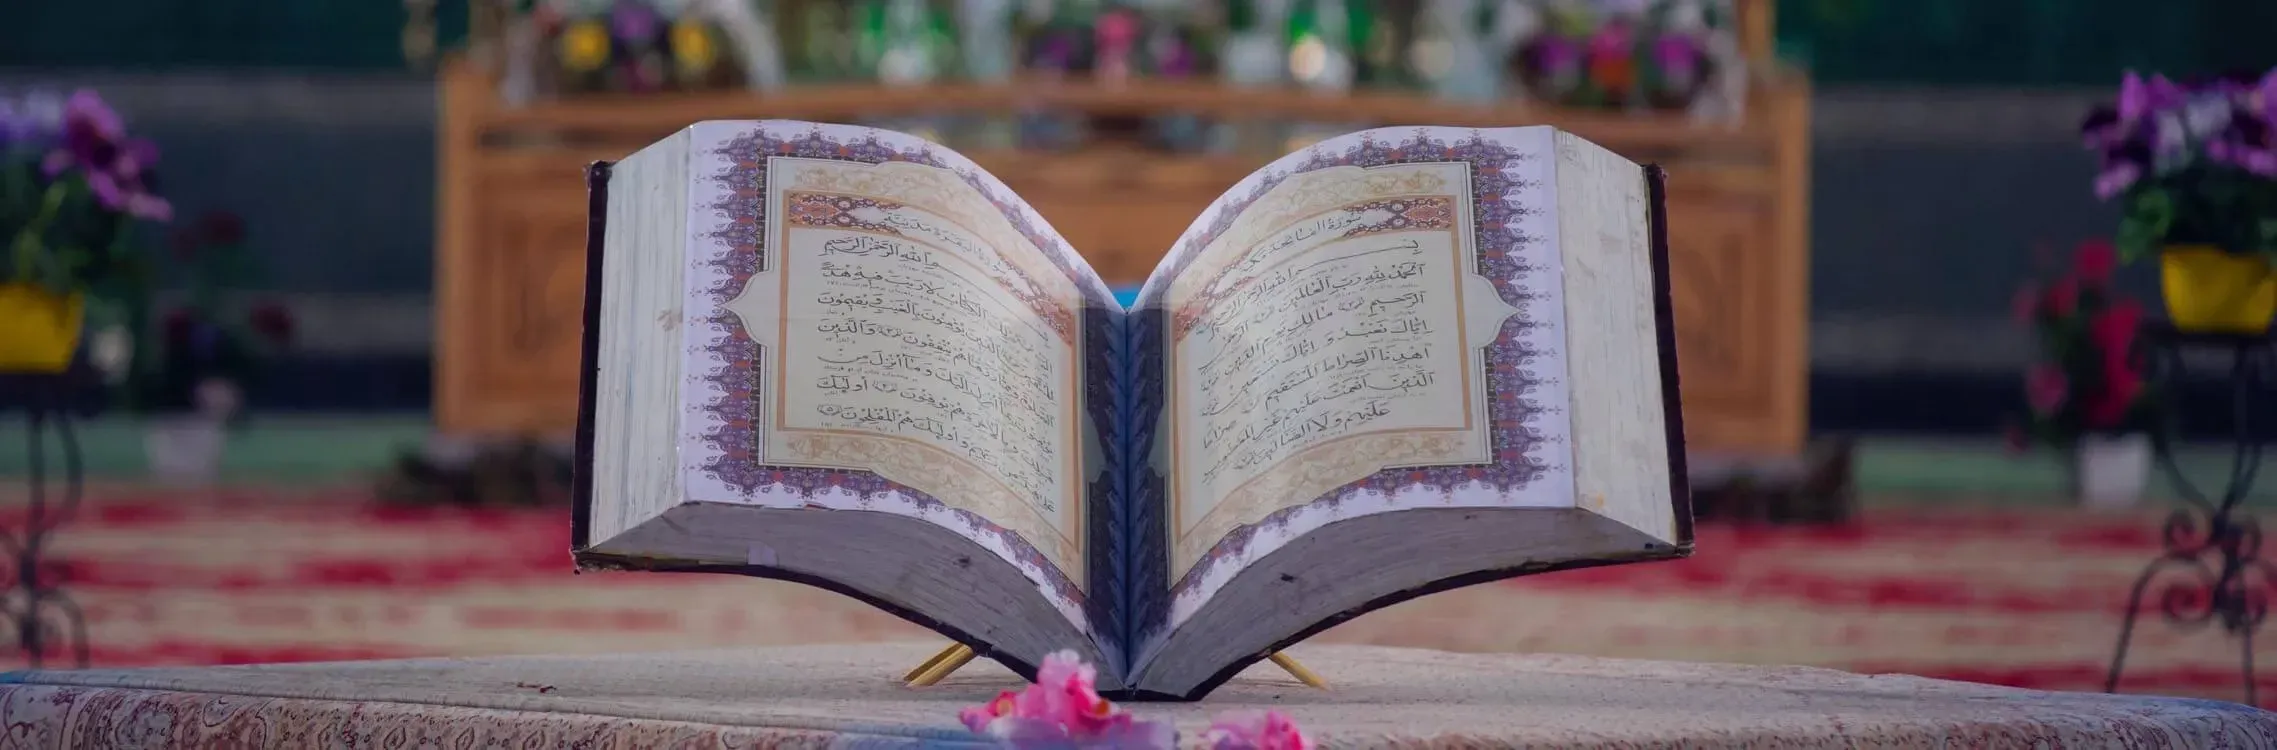 سورة الفاتحة مكية
بسم الله الرحمن الرحيم
الحمد لله رب العالمين الرحمن
الرحيم مالك يوم الدين
إياك نعبد وإياك نستعين
اهدنا الصراط المستقيم صراط
الذين أنعمت عليهم غير المغضوب
عليهم ولا الضالين
سورة البقرة مدنية
بسم الله الرحمن الرحيم
الم ذلك الكتاب لا ريب فيه هدى
للمتقين الذين يؤمنون بالغيب ويقيمون
الصلوة ومما رزقناهم ينفقون والذين
يؤمنون بما أنزل إليك وما أنزل من
قبلك وبالآخرة هم يوقنون أولئك
على هدى من ربهم وأولئك هم المفلحون